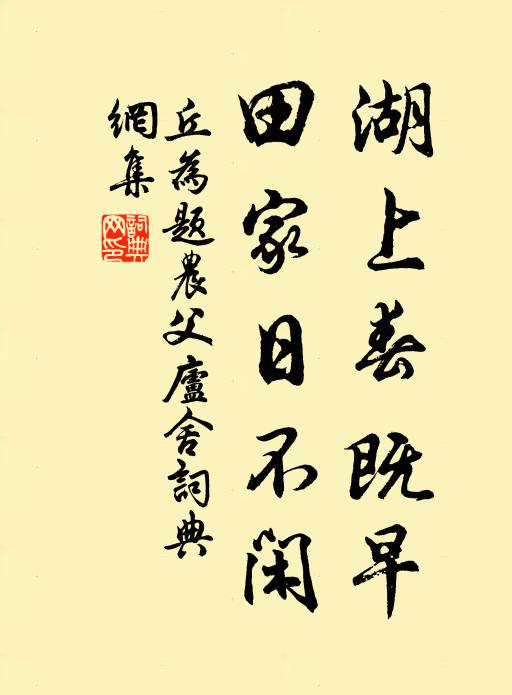 湖上春既早
田家日不閑
丘為題農父廬舍詞典
網集
詞典網印